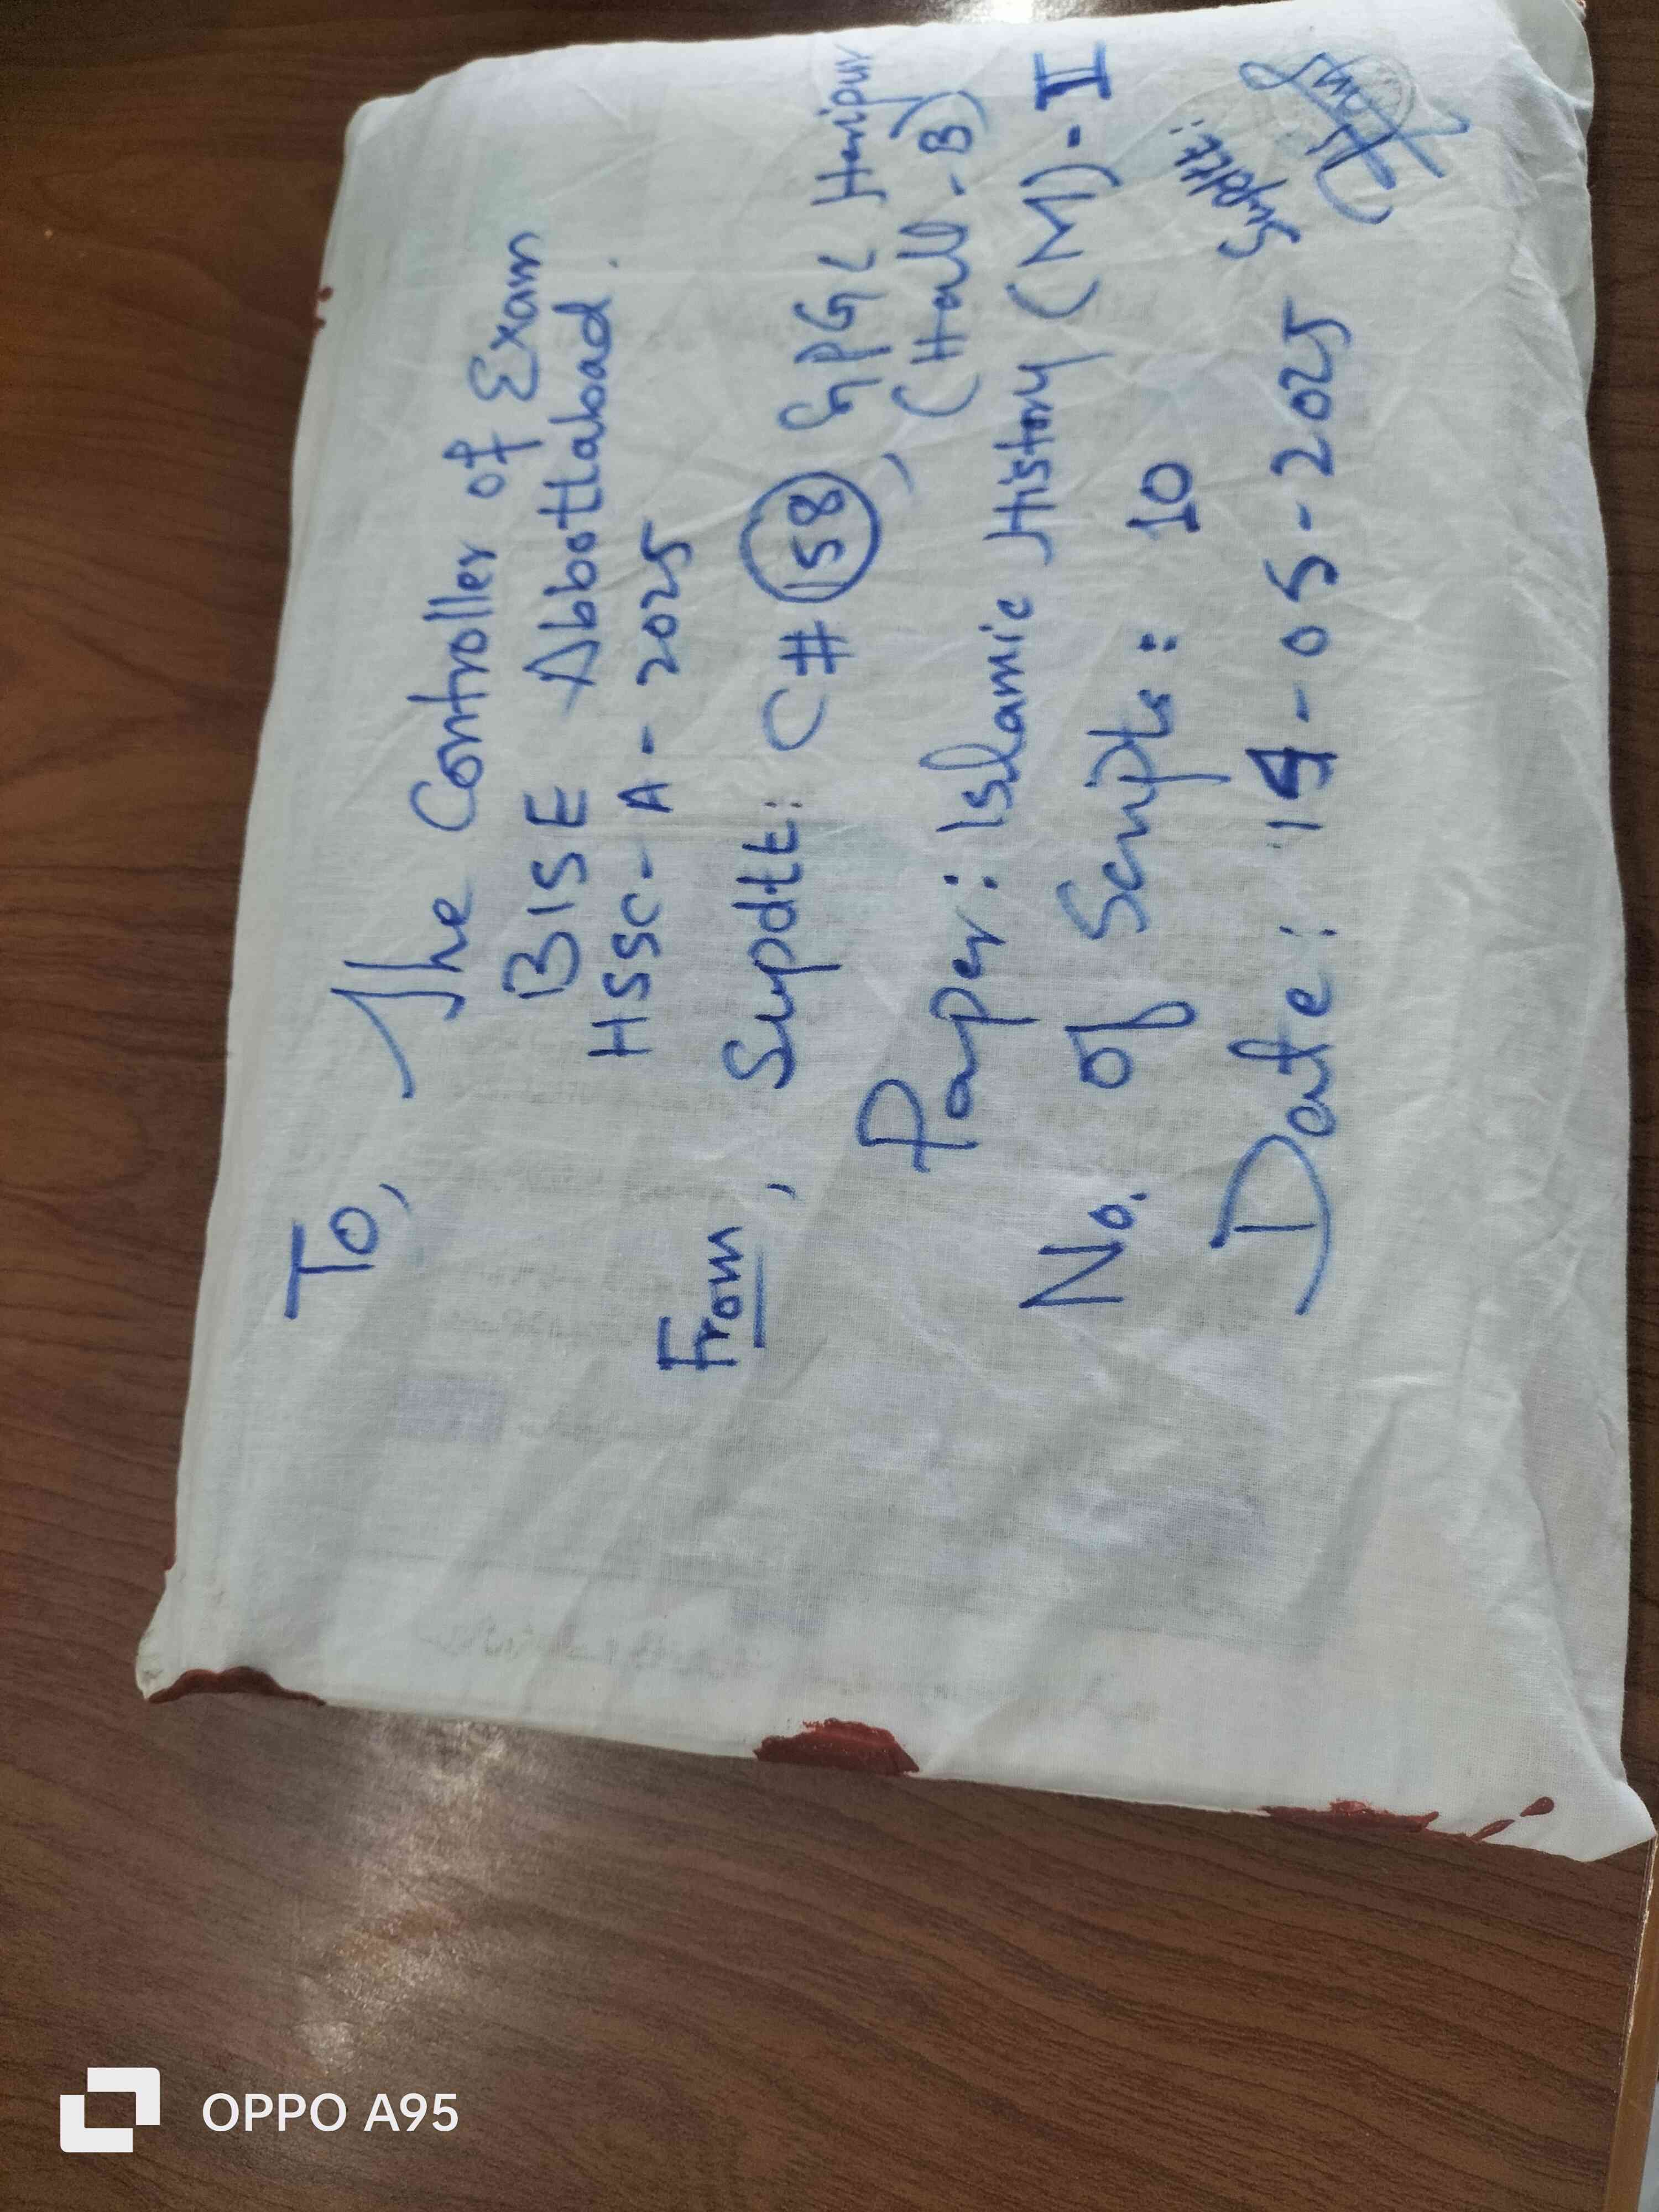 To,
The Controller of Exam
BISE Abbottabad.
HSSC-A-2025
From, Supdtt: C# 158, GPGC Haripur
(Hall-B)
Paper: Islamic History (M)-II
No. of Scripts: 10
Date: 14-05-2025
Supdtt:
OPPO A95